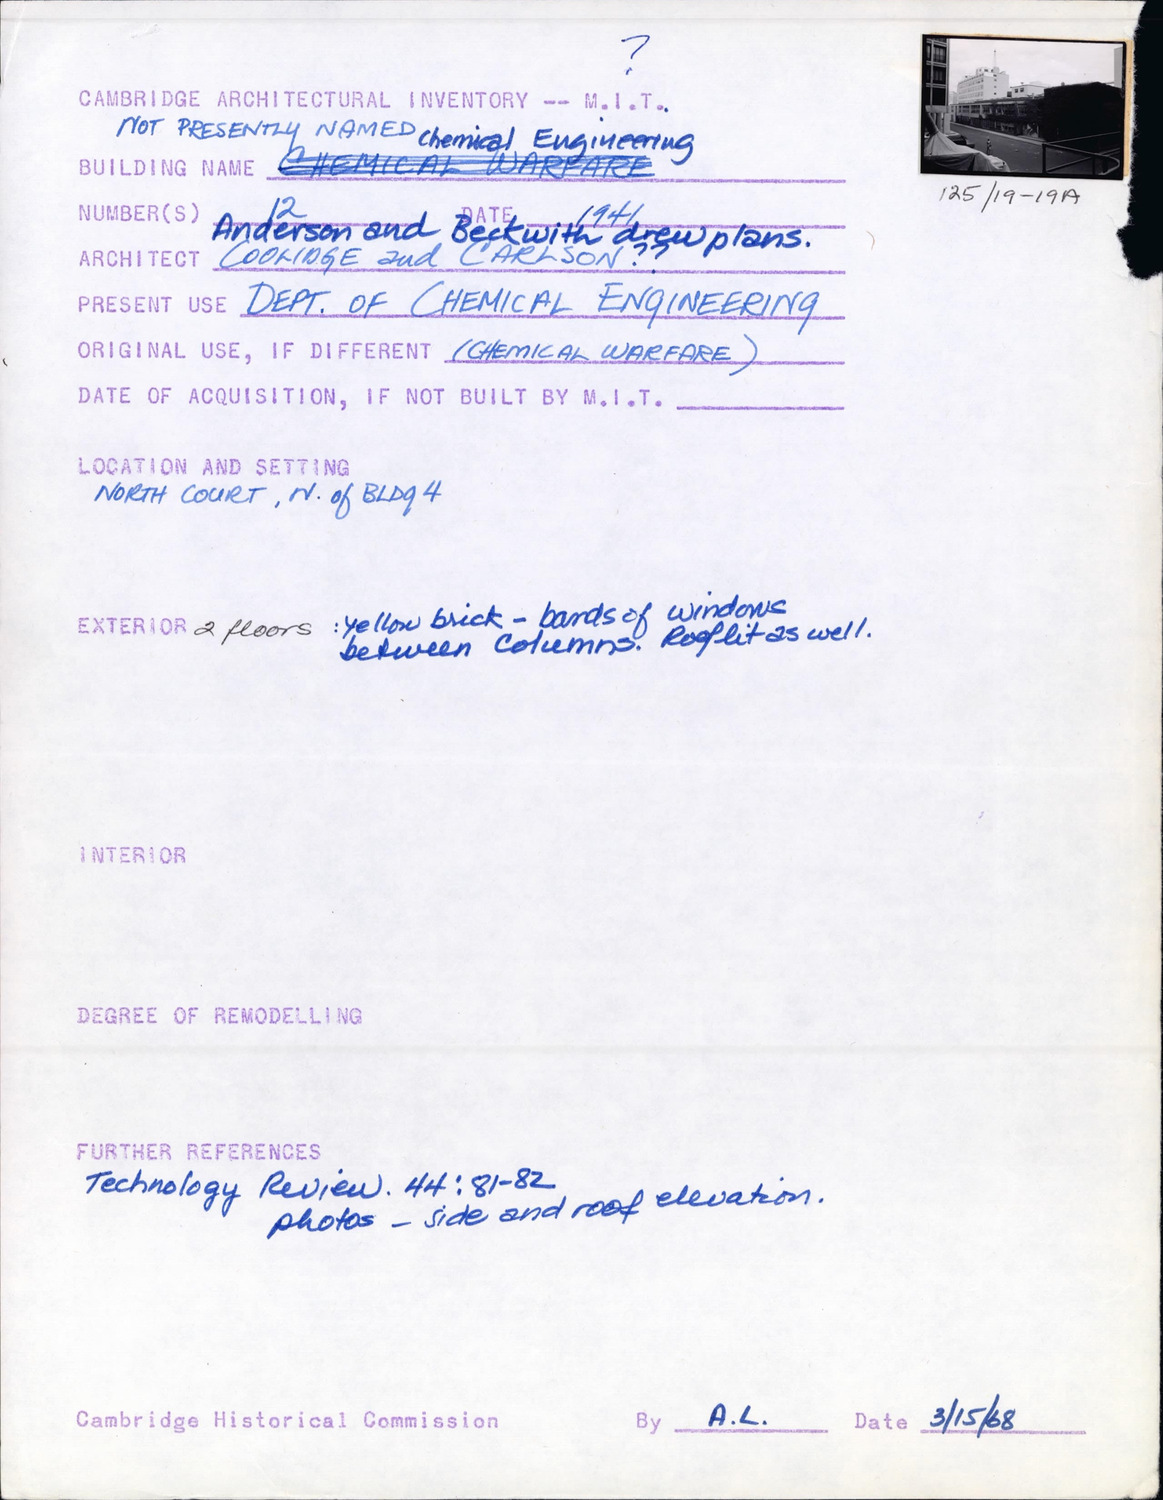 ?
CAMBRIDGE ARCHITECTURAL INVENTORY -- M.I.T.
NOT PRESENTLY NAMED Chemical Engineering
BUILDING NAME CHEMICAL WARFARE
125/19-19A
NUMBER(S) 12 DATE 1941
Anderson and Beckwith drew plans.
ARCHITECT COOLIDGE and CARLSON??
PRESENT USE DEPT. OF CHEMICAL ENGINEERING
ORIGINAL USE, IF DIFFERENT (CHEMICAL WARFARE)
DATE OF ACQUISITION, IF NOT BUILT BY M.I.T.
LOCATION AND SETTING
NORTH COURT, N. of BLDG 4
EXTERIOR 2 floors : yellow brick - bands of windows
between columns. Rooflit as well.
INTERIOR
DEGREE OF REMODELLING
FURTHER REFERENCES
Technology Review. 44: 81-82
photos - side and roof elevation.
Cambridge Historical Commission By A.L. Date 3/15/68